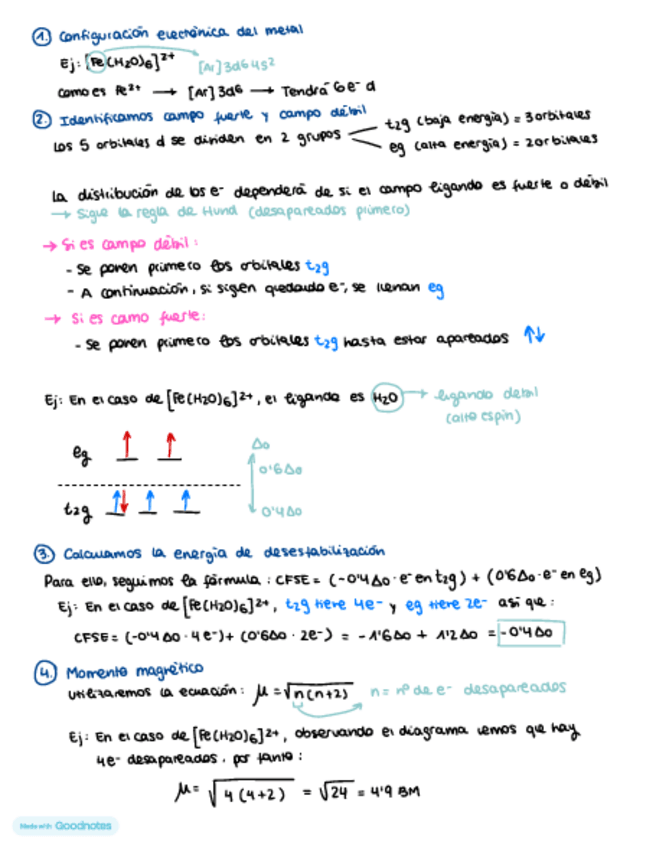 1. Configuración electrónica del metal
Ej: [Fe(H2O)6]2+ [Ar]3d6 4s2
como es Fe2+ → [Ar]3d6 → Tendrá 6 e- d
2. Identificamos campo fuerte y campo débil
Los 5 orbitales d se dividen en 2 grupos
t2g (baja energía) = 3 orbitales
eg (alta energía) = 2 orbitales
La distribución de los e- dependerá de si el campo ligando es fuerte o débil
→ Sigue la regla de Hund (desapareados primero)
→ Si es campo débil:
- Se ponen primero los orbitales t2g
- A continuación, si sigen quedando e-, se llenan eg
→ Si es camo fuerte:
- Se ponen primero los orbitales t2g hasta estar apareados ↑↓
Ej: En el caso de [Fe(H2O)6]2+, el ligando es H2O → ligando débil
(alto espín)
eg ↑ ↑
Δo
0'6Δo
t2g ↑↓ ↑ ↑
0'4Δo
3. Calculamos la energía de desestabilización
Para ello, seguimos la fórmula: CFSE = (-0'4Δo·e- en t2g) + (0'6Δo·e- en eg)
Ej: En el caso de [Fe(H2O)6]2+, t2g tiene 4e- y eg tiene 2e- así que:
CFSE = (-0'4Δo · 4e-) + (0'6Δo · 2e-) = -1'6Δo + 1'2Δo = -0'4Δo
4. Momento magnético
Utilizaremos la ecuación: μ = √n(n+2) n = nº de e- desapareados
Ej: En el caso de [Fe(H2O)6]2+, observando el diagrama vemos que hay
4e- desapareados. por tanto:
μ = √4(4+2) = √24 = 4'9 BM
Made with Goodnotes